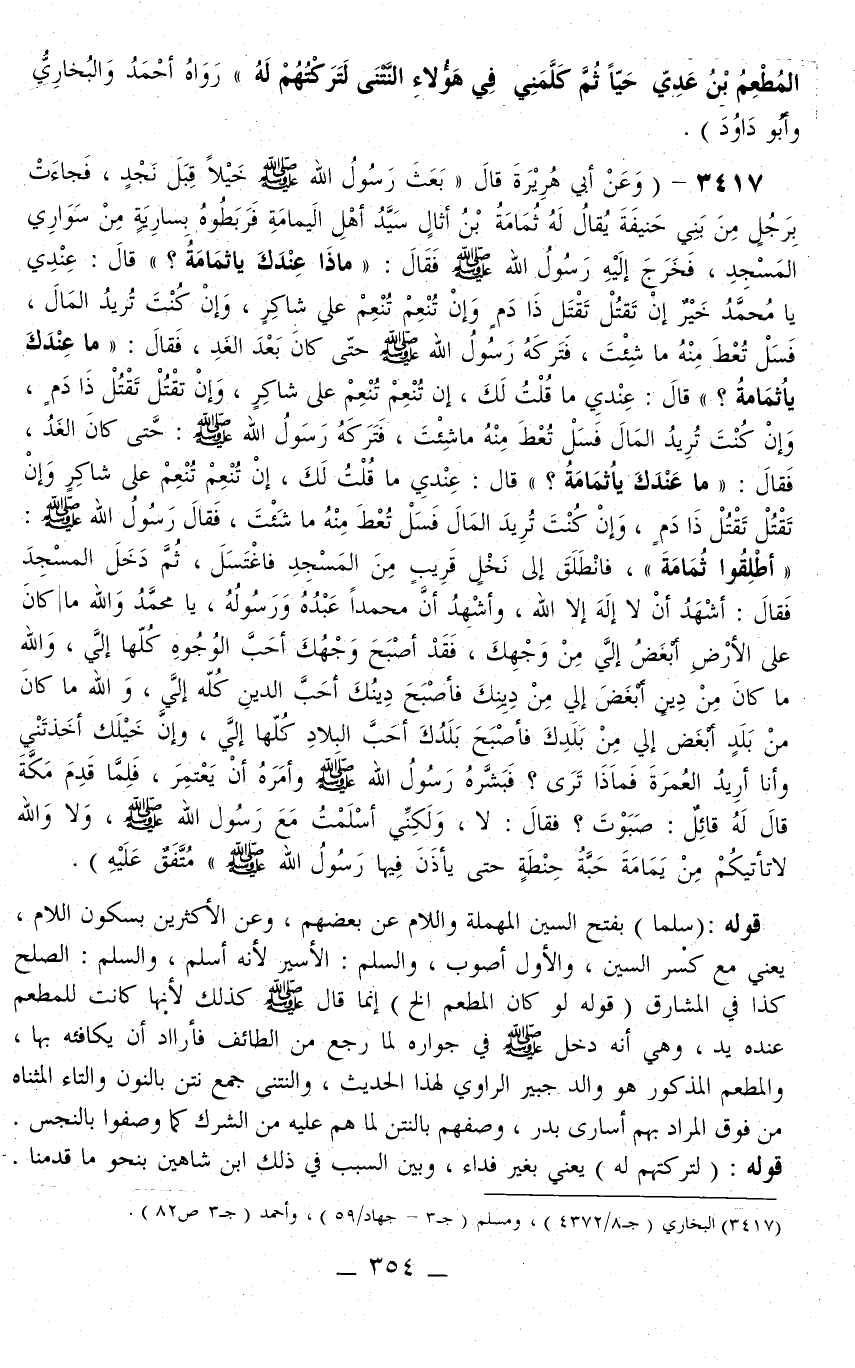 المُطْعِمُ بْنُ عَدِيّ حَيّاً ثُمَّ كَلَّمَنِي فِي هَؤُلاءِ النَّتْنَى لَتَرَكْتُهُمْ لَهُ » رَوَاهُ أحْمَدُ وَالبُخارِيُّ
وأبُو دَاوُدَ ) .
٣٤١٧ – ( وَعَنْ أبي هُرَيْرَةَ قالَ « بَعَثَ رَسُولُ الله ﷺ خَيْلاً قِبَلَ نَجْدٍ ، فَجاءَتْ
بِرَجُلٍ مِنَ بَنِي حَنيفَةَ يُقالُ لَهُ ثُمَامَةُ بْنُ أثالٍ سَيَّدُ أهْلِ اليَمامَةِ فَرَبَطُوهُ بِسارِيَةٍ مِنْ سَوَارِي
المَسْجِدِ ، فَخَرَجَ إلَيْهِ رَسُولُ الله ﷺ فَقَالَ : « ماذَا عِنْدَكَ ياثمَامَةُ ؟ » قالَ : عِنْدِي
يا مُحمَّدُ خَيْرٌ إنْ تَقْتُلْ تَقْتَل ذَا دَمٍ وَإنْ تُنْعِمْ تُنْعِمْ علي شاكِرٍ ، وَإنْ كُنْتَ تُرِيدُ المَالَ ،
فَسَلْ تُعْطَ مِنْهُ ما شِئْتَ ، فَتَركَهُ رَسُولُ الله ﷺ حتّى كانَ بَعْدَ الغَدِ ، فَقالَ : « ما عِنْدَكَ
ياُثمَامَةُ ؟ » قالَ : عِنْدِي ما قُلْتُ لَكَ ، إن تُنْعِمْ تُنْعِمْ على شاكِرٍ ، وَإنْ تقْتُلْ تَقْتُلْ ذَا دَمٍ ،
وَإنْ كُنْتَ تُرِيدُ المَالَ فَسَلْ تُعْطَ مِنْهُ ماشِئْتَ ، فَتَرَكَهُ رَسُولُ الله ﷺ : حَّتى كانَ الغَدُ ،
فَقالَ : « ما عَنْدَكَ ياُثمَامَةُ ؟ » قال : عِنْدي ما قُلْتُ لَكَ ، إنْ تُنْعِمْ تُنْعِمْ على شاكِرٍ وَإنْ
تَقْتُلْ تَقْتُلْ ذَا دَمٍ ، وَإنْ كُنْتَ تُرِيدَ المَالَ فَسَل تُعْطَ مِنْهُ ما شَئْتَ ، فَقالَ رَسُولُ الله ﷺ :
« أطْلِقُوا ثُمَامَةَ » ، فانْطَلَقَ إلى نَخْلٍ قَرِيبٍ مِنَ المَسْجِدِ فاغْتَسَلَ ، ثُمَّ دَخَلَ المسْجِدَ
فَقالَ : أشْهَدُ أنْ لا إلَهَ إلا الله ، وأشْهدُ أنَّ محمداً عَبْدُهُ وَرَسُولُهُ ، يا محمَّدُ وَالله ما كانَ
على الأرْضِ أبْغَضُ إليَّ مِنْ وَجْهِكَ ، فَقَدْ أصْبَحَ وَجْهُكَ أحَبَّ الوُجُوهِ كُلّها إليَّ ، وَالله
ما كانَ مِنْ دِينٍ أبْغَضَ إلي مِنْ دِينِكَ فأصْبَحَ دِينُكَ أحَبَّ الدينِ كُلّه إليَّ ، وَ الله ما كانَ
منْ بَلَدٍ أبْغَض إلي مِنْ بَلَدِكَ فأصْبَحَ بَلَدُكَ أحَبَّ البِلادِ كُلّها إليَّ ، وإنَّ خَيْلَك أخَذتَنْي
وأنا أرِيدُ العُمرَةَ فَماَذَا تَرَى ؟ فَبَشَّرهُ رَسُولُ الله ﷺ وأمَرَهُ أنْ يَعْتمِرَ ، فَلِمَّا قَدِمَ مَكَّةَ
قالَ لَهُ قائِلٌ : صَبَوْتَ ؟ فقالَ : لا ، وَلَكِنِّي أسْلَمْتُ مَعَ رَسُول الله ﷺ ، وَلا وَالله
لاتأتيكُمْ مِنْ يَمَامَةَ حَبَّةُ حِنْطَةٍ حتى يأذَنَ فِيها رَسُولُ الله ﷺ » مُتَّفَقٌ عَلَيْهِ ) .
قوله :(سلما ) بفتح السين المهملة واللام عن بعضهم ، وعن الأكثرين بسكون اللام ،
يعني مع كسْر السين ، والأول أصوب ، والسلم : الأسير لأنه أسلم ، والسلم : الصلح
كذا في المشارق ( قوله لو كان المطعم الخ ) إنما قال ﷺ كذلك لأنها كانت للمطعم
عنده يد ، وهي أنه دخل ﷺ في جواره لما رجع من الطائف فأرااد أن يكافئه بها ،
والمطعم المذكور هو والد جبير الراوي لهذا الحديث ، والنتنى جمع نتن بالنون والتاء المثناه
من فوق المراد بهم أسارى بدر ، وصفهم بالنتن لما هم عليه من الشرك كما وصفوا بالنجس .
قوله : ( لتركتهم له ) يعني بغير فداء ، وبين السبب في ذلك ابن شاهين بنحو ما قدمنا .
(٣٤١٧) البخاري ( جـ٤٣٧٢/٨ ) ، ومسلم ( جـ٣ – جهاد/٥٩ ) ، وأحمد ( جـ٣ ص٨٢ ) .
_ ٣٥٤ _